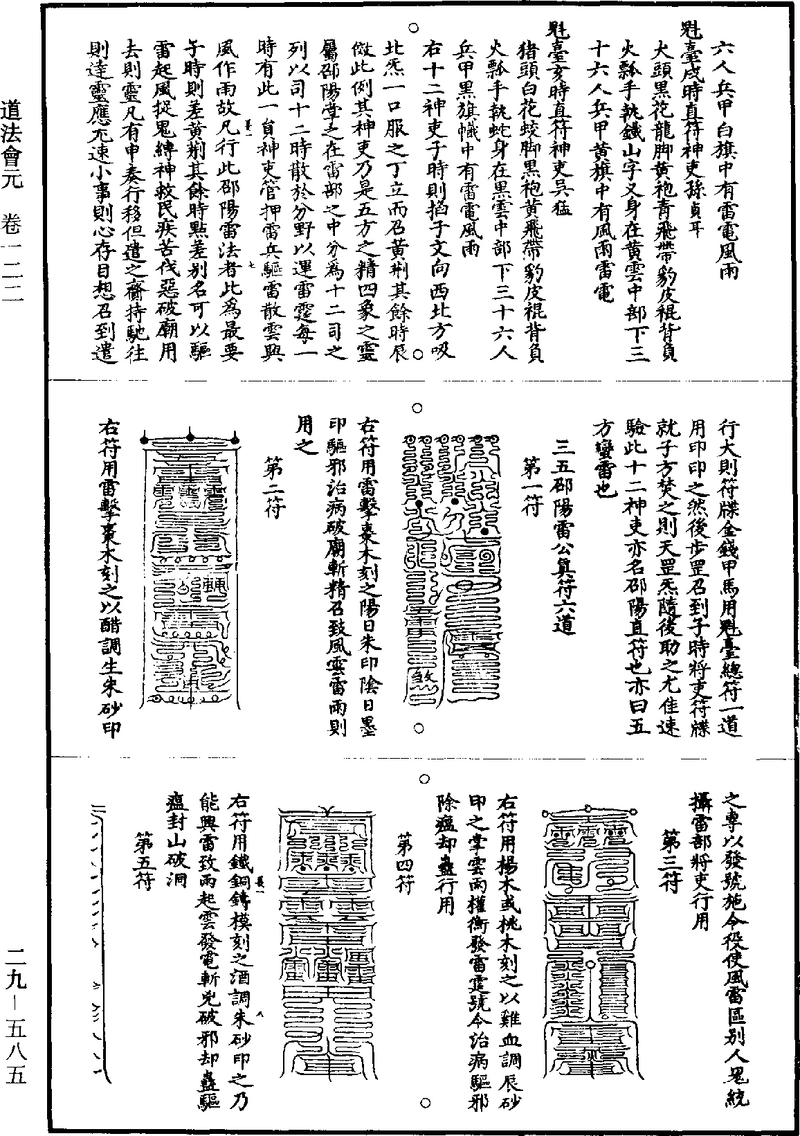 道法會元 卷一二二
二九—五八五
六人兵甲白旗中有雷電風雨
魁臺戌時直符神吏孫貞耳
犬頭黑花龍脚黃袍青飛帶豹皮裩背負
火瓢手執鐵山字叉身在黃雲中部下三
十六人兵甲黃旗中有風雨雷電
魁臺亥時直符神吏吳猛
猪頭白花蛟脚黑袍黃飛帶豹皮裩背負
火瓢手執蛇身在黑雲中部下三十六人
兵甲黑旗幟中有雷電風雨
右十二神吏子時則掐子文向西北方吸
北炁一口服之丁立而召黃荆其餘時辰
倣此例其神吏乃是五方之精四象之靈
屬邵陽掌之在雷部之中分爲十二司之
列以司十二時散於分野以運雷霆每一
時有此一員神吏管押雷兵驅雷散雲興
風作雨故凡行此邵陽雷法者此爲最要
子時則差黃荆其餘時點差別名可以驅
雷起風捉鬼縛神救民疾苦伐惡破廟用
去則靈凡有申奏行移但遣之齎持馳往
則達靈應尤速小事則心存目想召到遣
行大則符牒金錢甲馬用魁臺總符一道
用印印之然後步罡召到子時將吏符牒
就子方焚之則天罡炁隨後助之尤佳速
驗此十二神吏亦名邵陽直符也亦曰五
方蠻雷也
三五邵陽雷公眞符六道
第一符
煞
右符用雷擊棗木刻之陽日朱印陰日墨
印驅邪治病破廟斬精召致風雲雷雨則
用之
第二符
右符用雷擊棗木刻之以醋調生朱砂印
之專以發號施令役使風雷區別人鬼統
攝雷部將吏行用
第三符
右符用楊木或桃木刻之以雞血調辰砂
印之掌雲雨權衡發雷霆號令治病驅邪
除瘟却蠱行用
第四符
右符用鐵銅鑄模刻之酒調朱砂印之乃
能興雷致雨起雲發電斬鬼破邪却蠱驅
瘟封山破洞
第五符